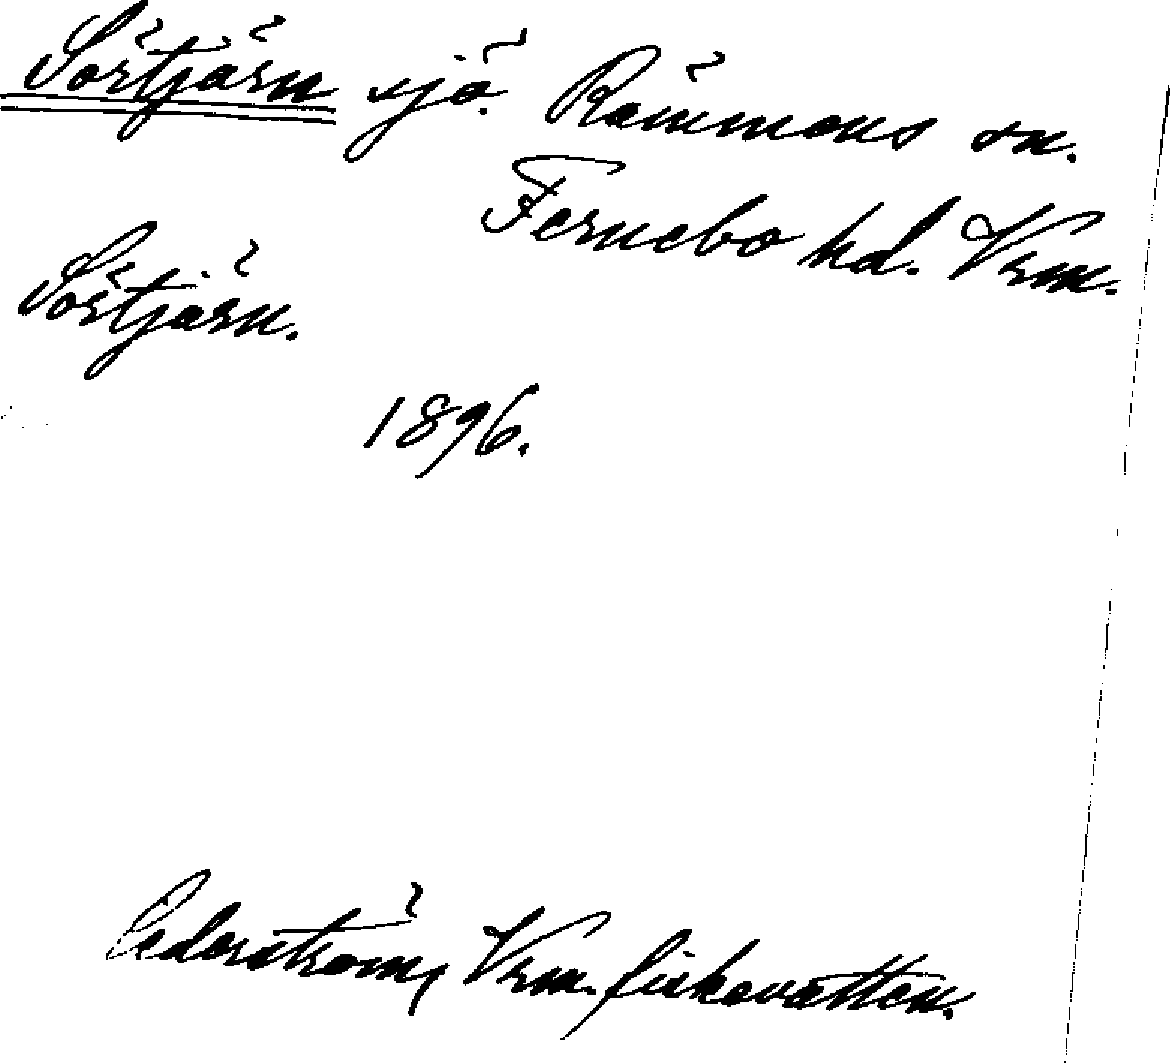 Sörtjärn sjö. Rämmens sn.
Fernebo hd. Vrm.
Sörtjärn.
1896.
Cederström, Vrm. fiskevatten.